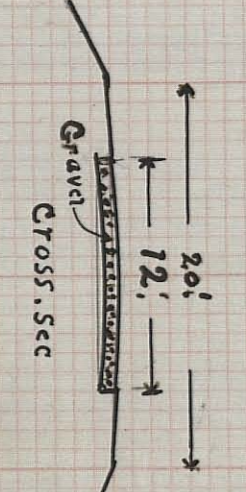 20'
12'
Gravel
Cross.Sec